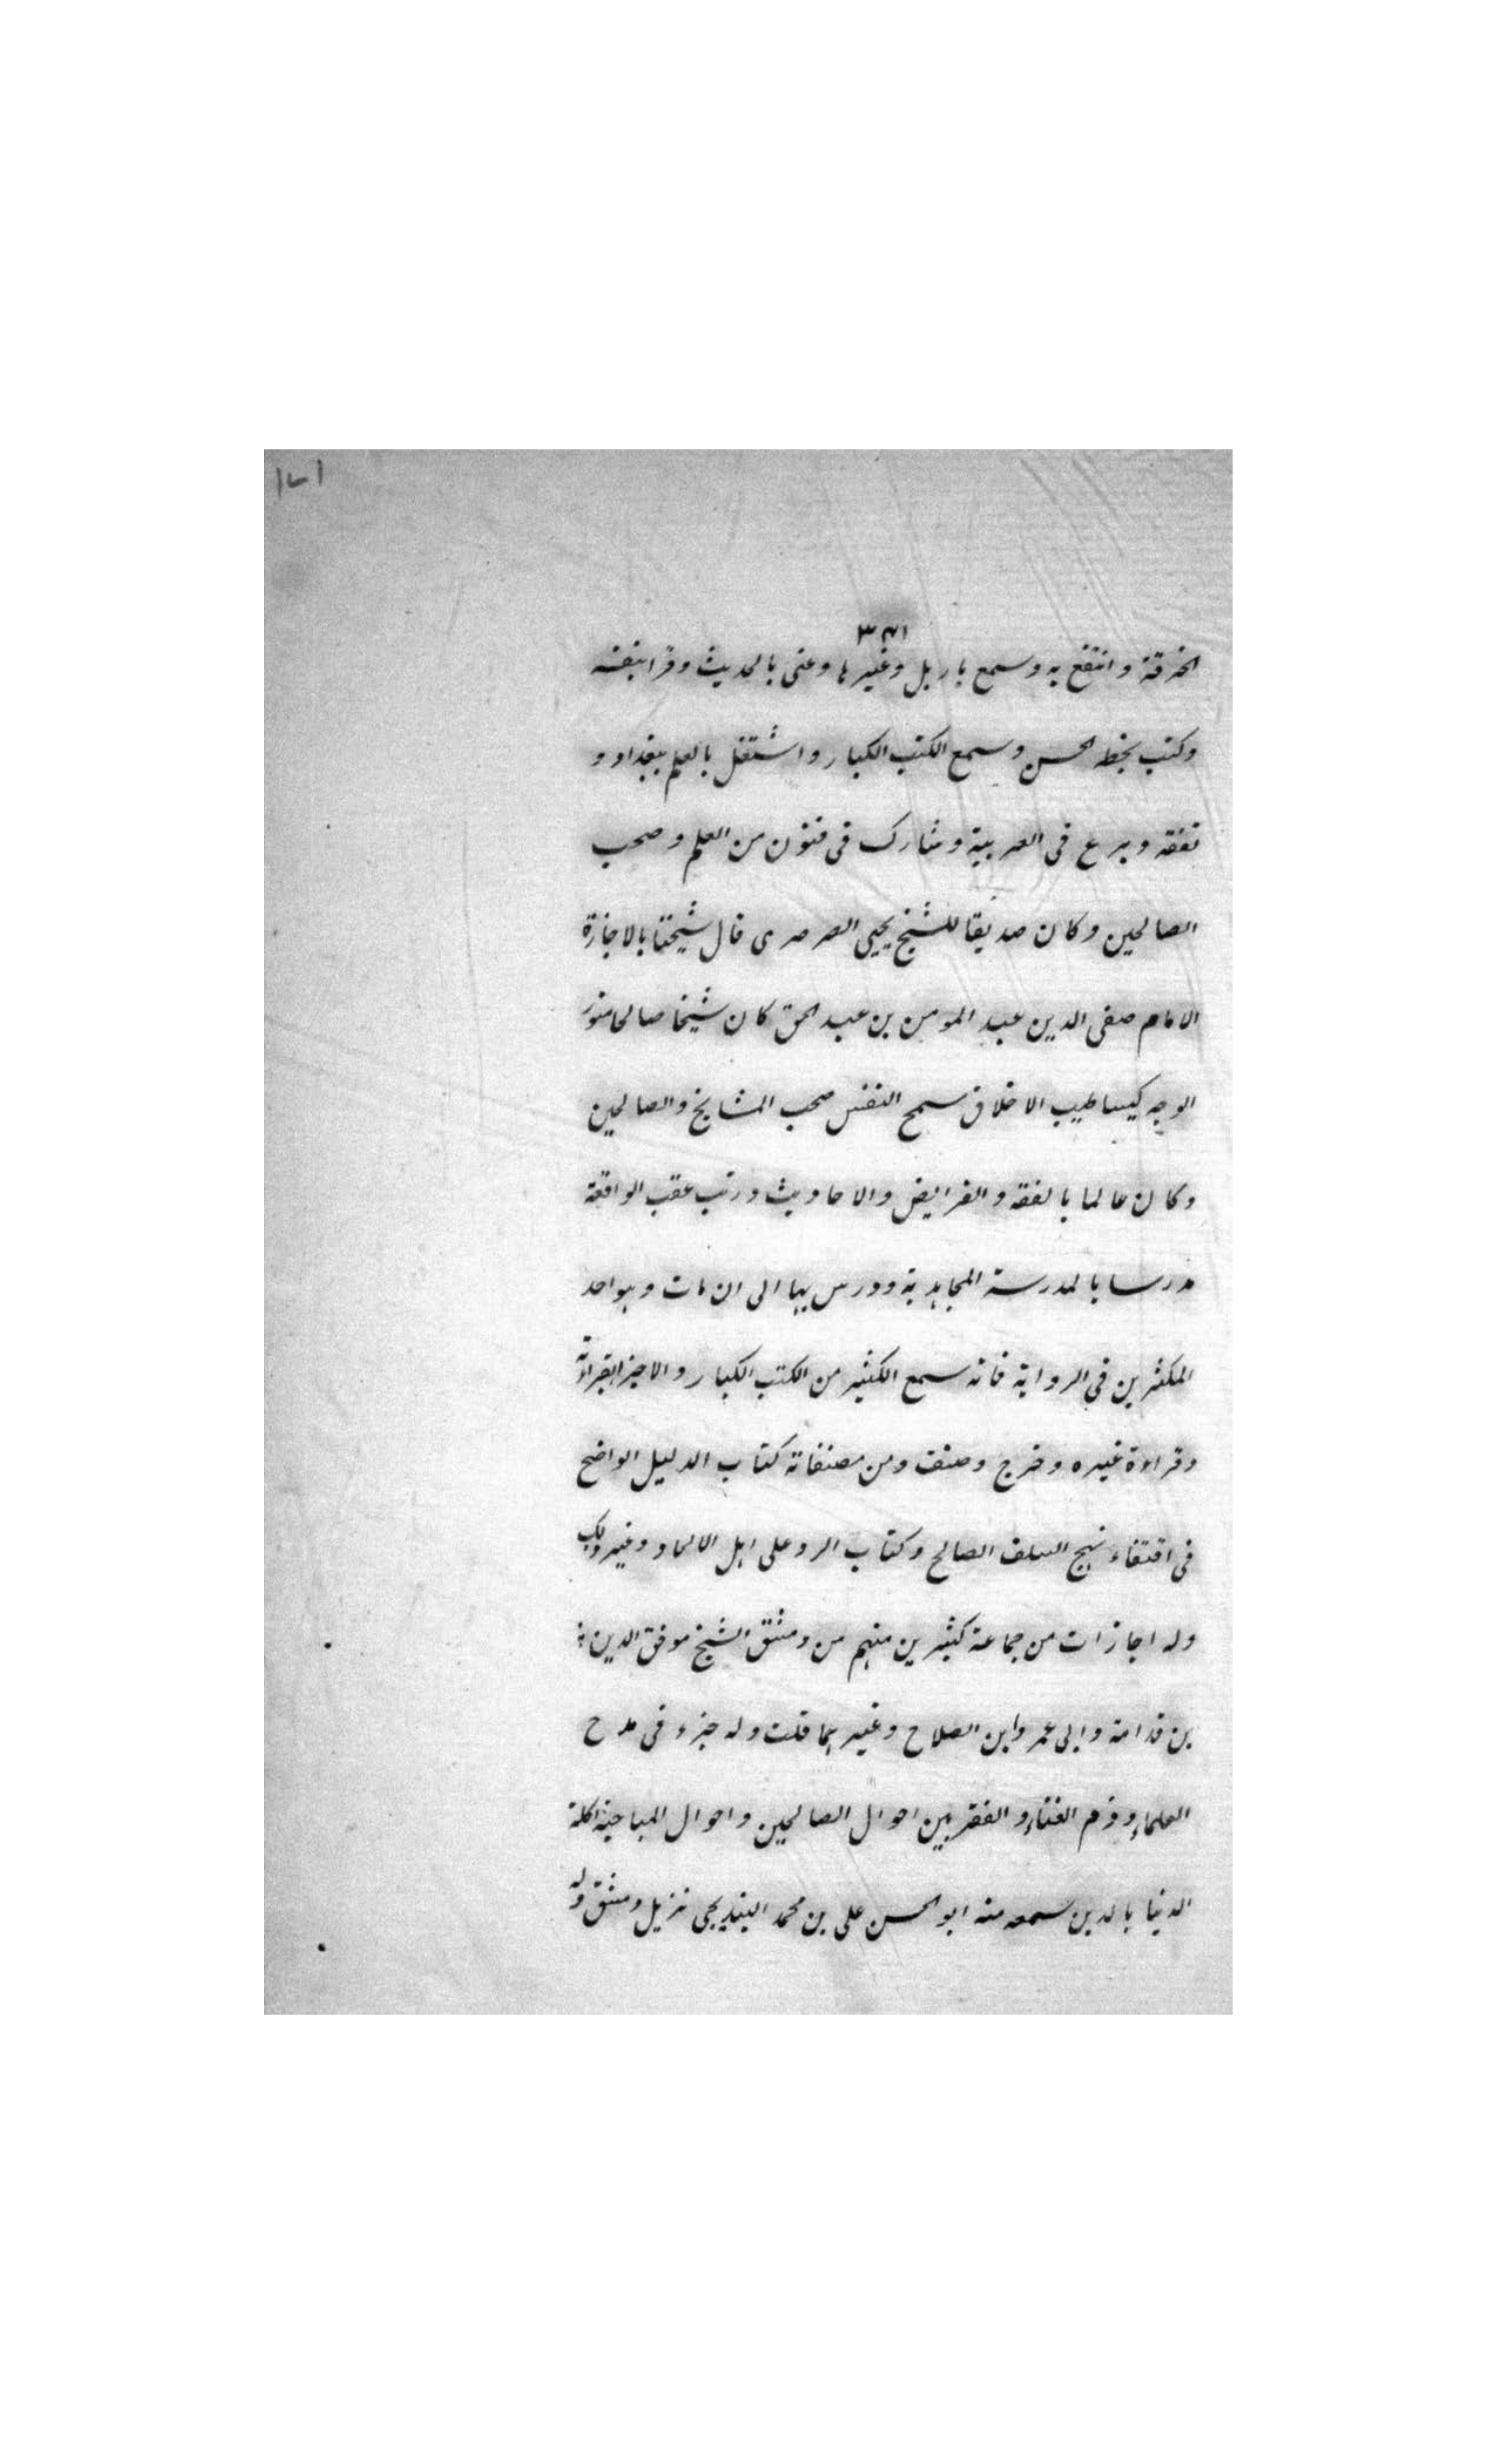 الخرقة وانتفع به وسمع باربل وغيرها وعنى بالحديث وقرا بنفسه
وكتب بخطه الحسن وسمع الكتب الكبار واشتغل بالعلم ببغداد و
تفقه وبرع فى العربية وشارك فى فنون من العلم وصحب
الصالحين وكان صديقا للشيخ يحيى الصرصرى قال شيخنا بالاجازة
الامام صفى الدين عبد المومن بن عبد الحق كان شيخا صالحا منور
الوجه كيسا طيب الاخلاق سمح النفس صحب المشايخ والصالحين
وكان عالما بالفقه والفرايض والاحاديث ورتب عقب الواقعة
مدرسا بالمدرسة المجاهدية ودرس بها الى ان مات وهو احد
المكثرين فى الرواية فانه سمع الكثير من الكتب الكبار والاجزا بقراءته
وقراءة غيره وخرج وصنف ومن مصنفاته كتاب الدليل الواضح
فى اقتفاء نهج السلف الصالح وكتاب الرد على اهل الالحاد وغير ذلك
وله اجازات من جماعة كثيرين منهم من دمشق الشيخ موفق الدين
بن قدامة وابى عمر وابن الصلاح وغيرهما قلت وله جزء فى مدح
العلماء وذم الغناء والفقر بين احوال الصالحين واحوال المباحية اكلة
الدنيا بالدين سمعه منه ابو الحسن على بن محمد البنديجى نزيل دمشق وله